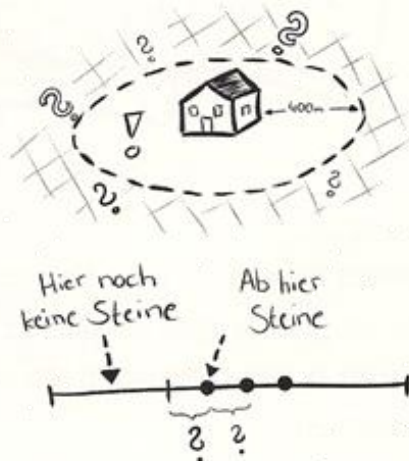 ?
?
?
!
400m
?
?
Hier noch
keine Steine
Ab hier
Steine
? ?